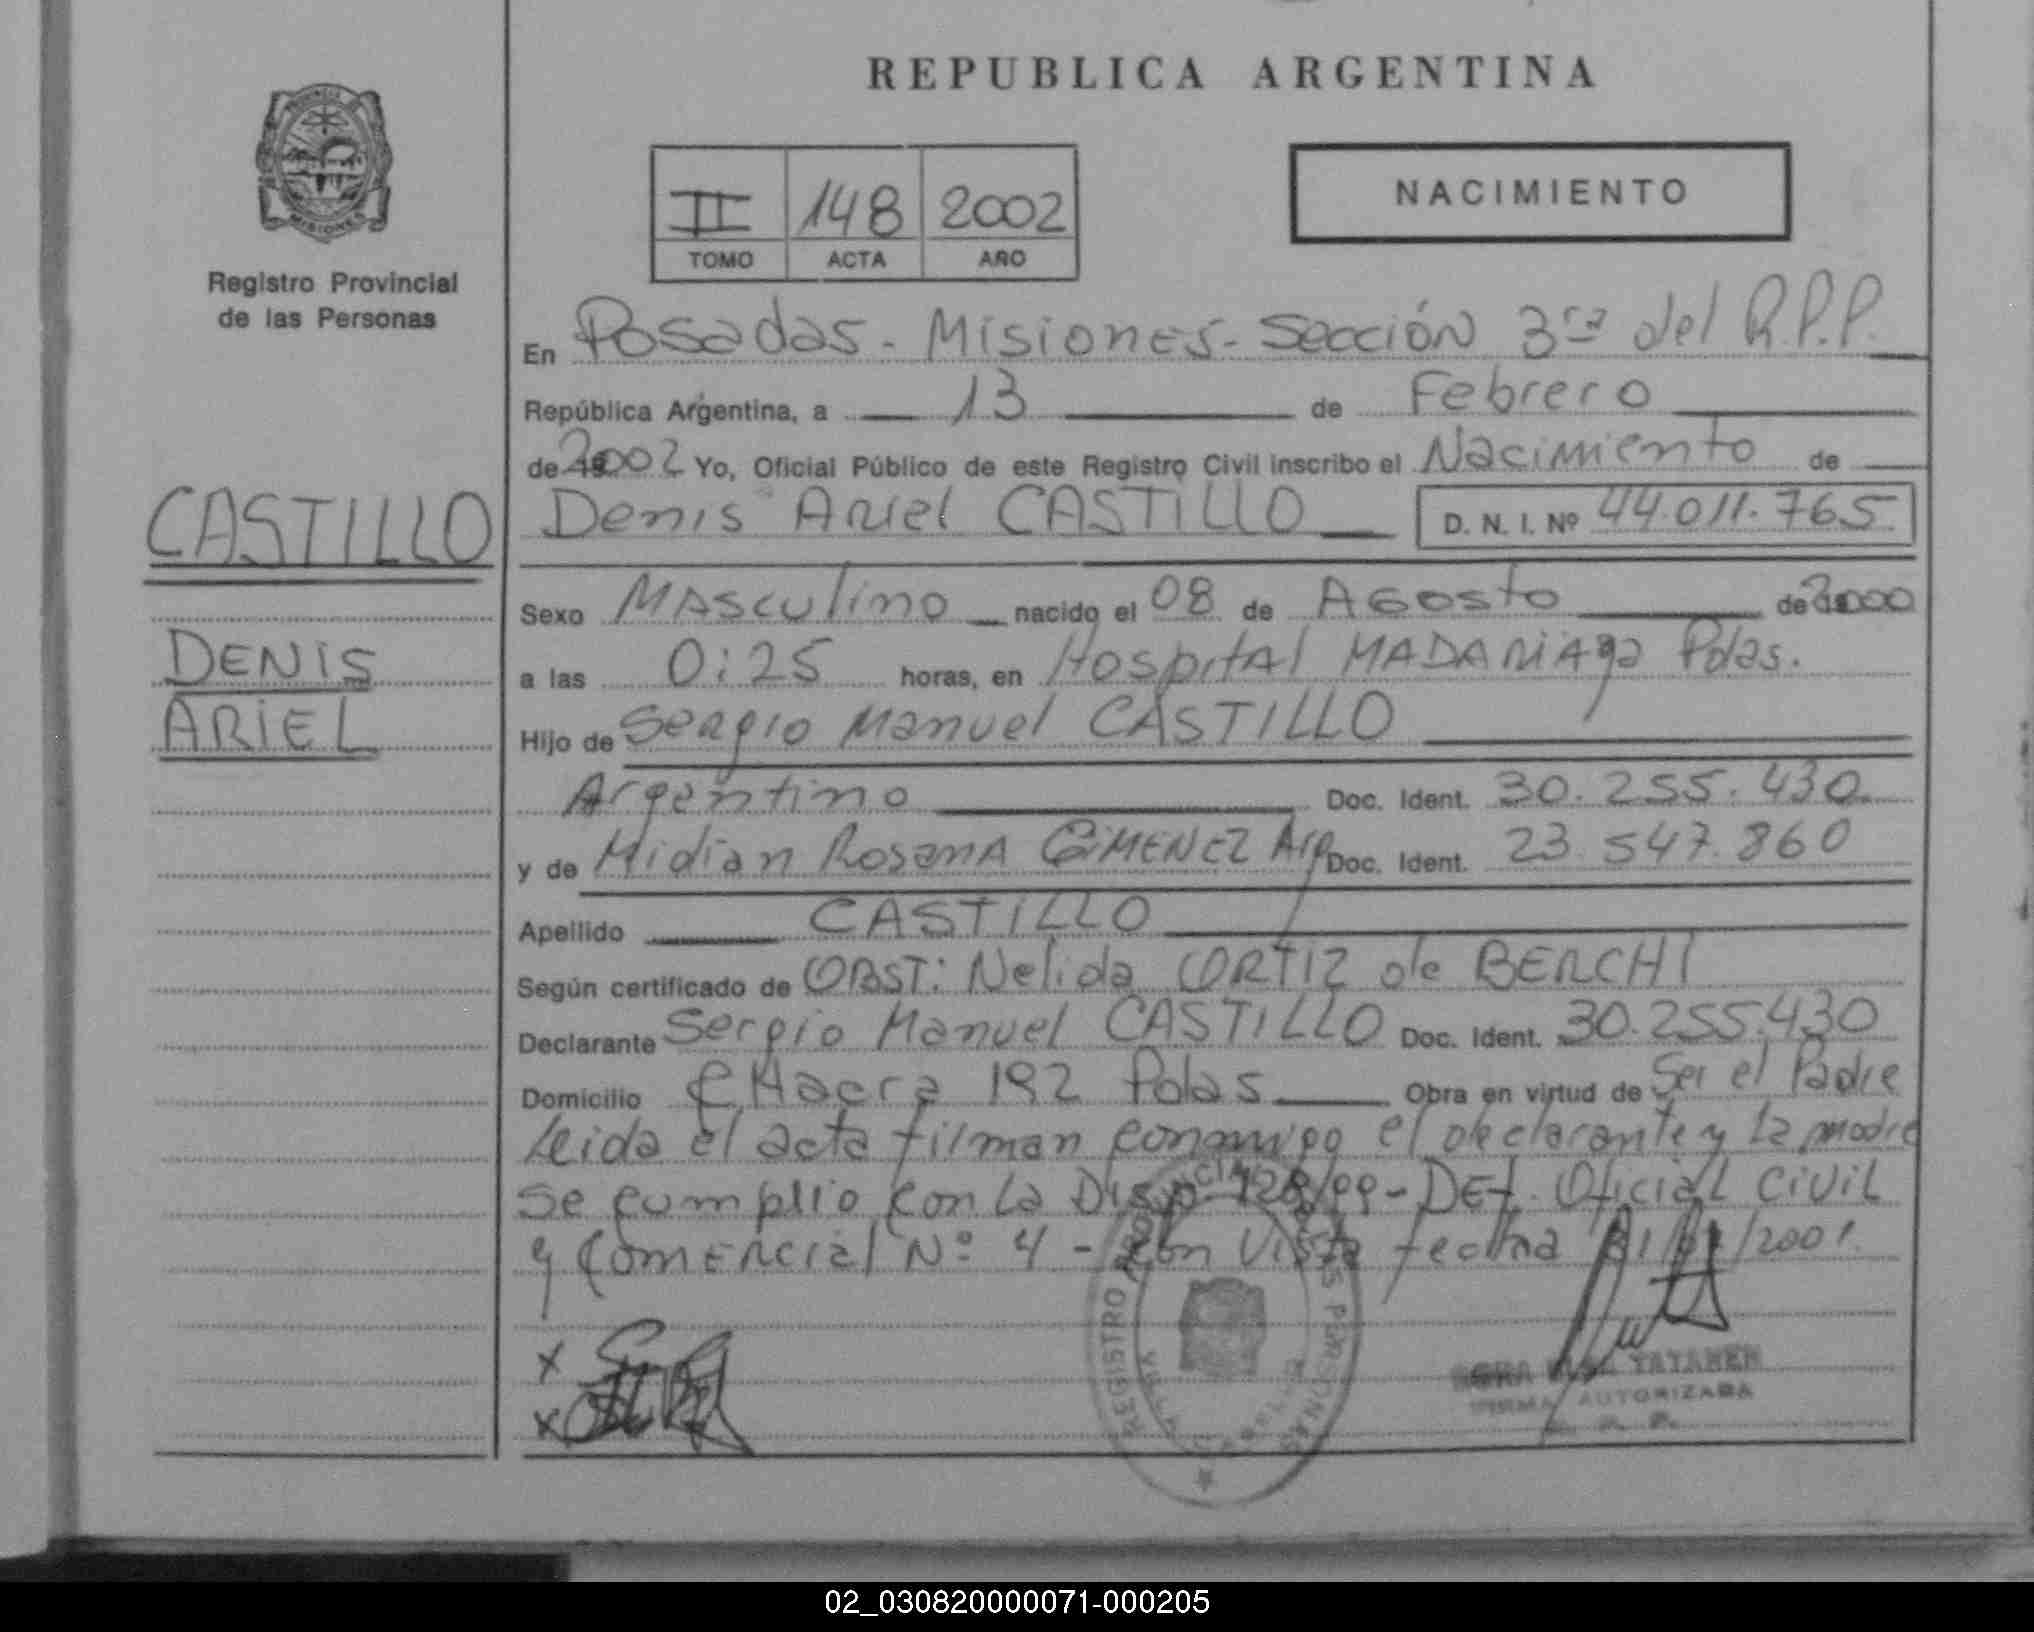 REPUBLICA ARGENTINA
PROVINCIA DE
MISIONES
Registro Provincial
de las Personas
II 148 2002
TOMO ACTA AÑO
NACIMIENTO
En Posadas - Misiones - Sección 3ra del R.P.P.
República Argentina, a 13 de Febrero
de 2002 Yo, Oficial Público de este Registro Civil inscribo el Nacimiento de
CASTILLO
Denis Ariel CASTILLO D. N. I. Nº 44.011.765
Sexo Masculino nacido el 08 de Agosto de 2000
DENIS
a las 0:25 horas, en Hospital MADARIAga Pdas.
ARIEL
Hijo de Sergio Manuel CASTILLO
Argentino Doc. Ident. 30.255.430
y de Midian Rosana GIMENEZ Arg Doc. Ident. 23.547.860
Apellido CASTILLO
Según certificado de OBST: Nelida ORTIZ de BERCHI
Declarante Sergio Manuel CASTILLO Doc. Ident. 30.255.430
Domicilio CHacra 192 Pdas Obra en virtud de Ser el Padre
Leida el acta firman conmigo el declarante y la madre
se cumplio con la Disp. 128/99 - DEf. Oficial Civil
y Comercial Nº 4 - con Vista fecha /2001.
X
X
REGISTRO PROVINCIAL DE LAS PERSONAS
TATAREN
FIRMA AUTORIZADA
R. P. P.
02_030820000071-000205